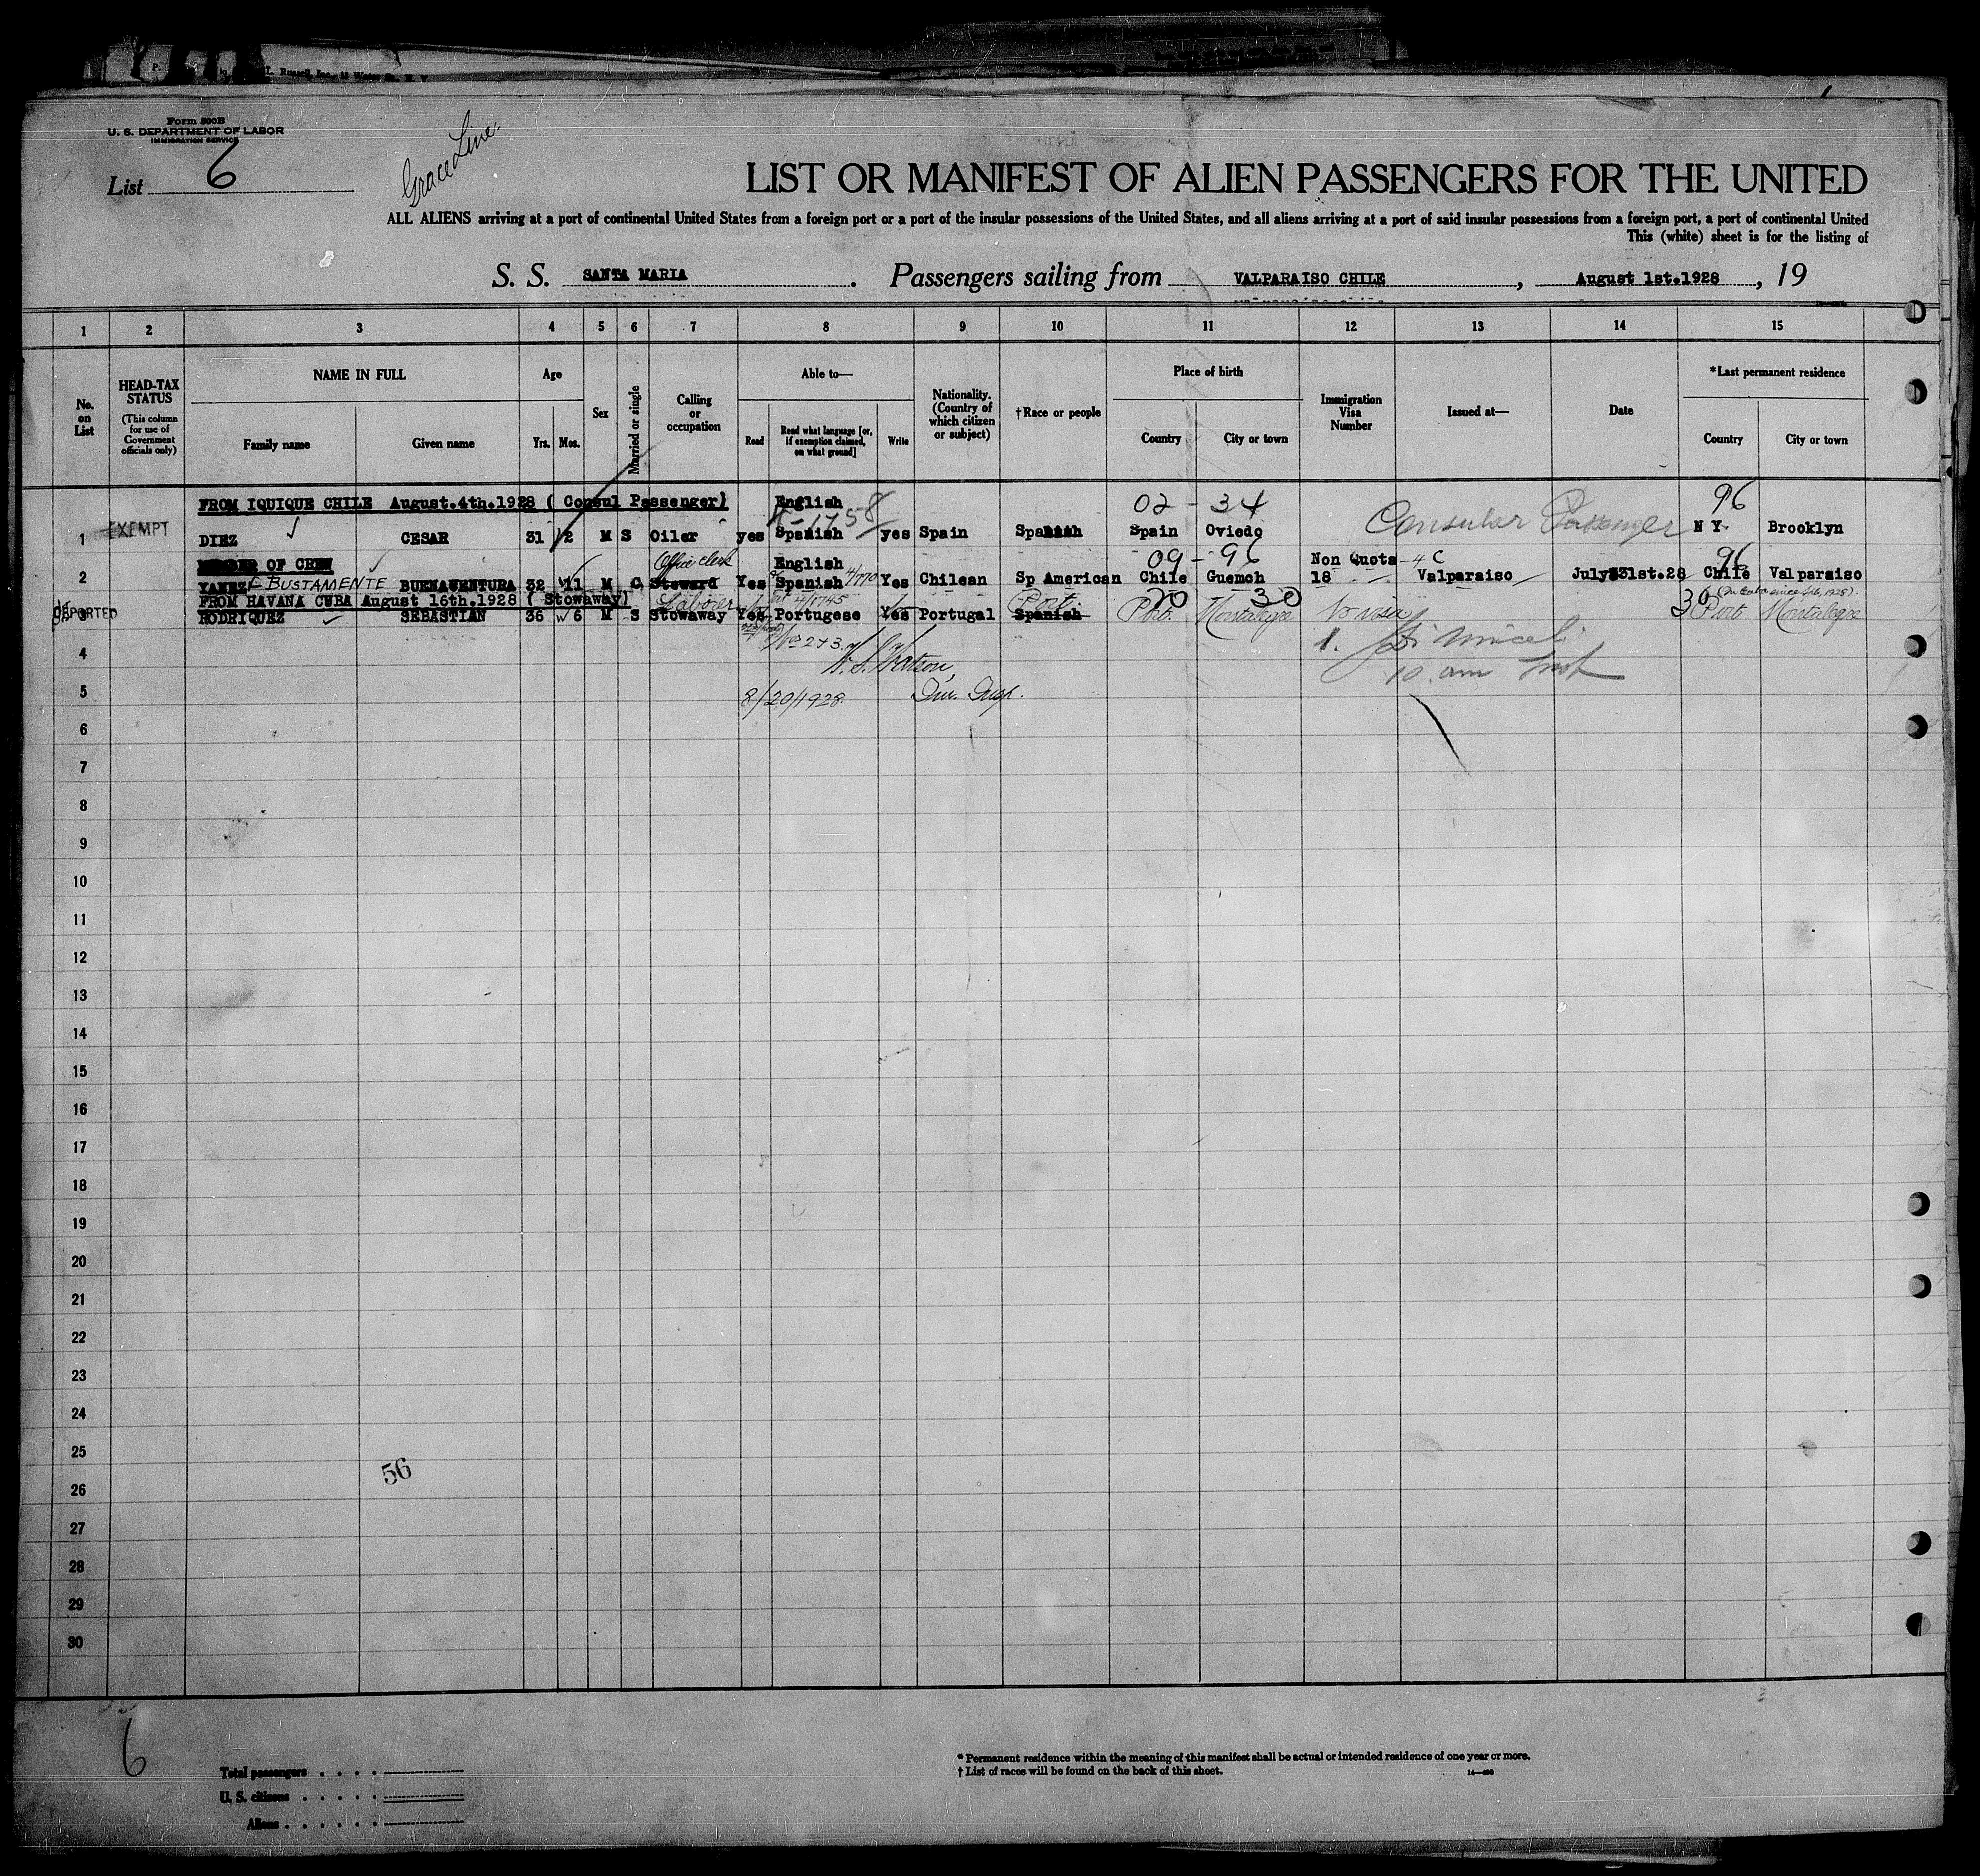 L. Russell, Inc., 15 Water St., N. Y.
Form 500B
U. S. DEPARTMENT OF LABOR
IMMIGRATION SERVICE
List 6
Grace Line.
LIST OR MANIFEST OF ALIEN PASSENGERS FOR THE UNITED
ALL ALIENS arriving at a port of continental United States from a foreign port or a port of the insular possessions of the United States, and all aliens arriving at a port of said insular possessions from a foreign port, a port of continental United
This (white) sheet is for the listing of
S. S. SANTA MARIA . Passengers sailing from VALPARAISO CHILE , August 1st.1928 , 19
1 2 3 4 5 6 7 8 9 10 11 12 13 14 15
No. on List
HEAD-TAX STATUS
(This column for use of Government officials only)
NAME IN FULL
Family name Given name
Age
Yrs. Mos.
Sex
Married or single
Calling or occupation
Able to—
Read
Read what language [or, if exemption claimed, on what ground]
Write
Nationality. (Country of which citizen or subject)
†Race or people
Place of birth
Country City or town
Immigration Visa Number
Issued at—
Date
*Last permanent residence
Country City or town
FROM IQUIQUE CHILE August.4th.1928 ( Consul Passenger) English 02 - 34 96
1 EXEMPT DIEZ CESAR 31 2 M S Oiler yes Spanish yes Spain Spanish Spain Oviedo Consular Passenger N Y Brooklyn
MEMBER OF CREW Office clerk English 09 - 96 Non Quota 4C 96
2 YANEZ BUSTAMENTE BUENAVENTURA 32 11 M Steward Yes Spanish Yes Chilean Sp American Chile Guemch 18 Valparaiso July 31st.28 Chile Valparaiso
FROM HAVANA CUBA August 16th.1928 ( Stowaway) Laborer Port. 30 30
3 DEPORTED RODRIQUEZ SEBASTIAN 36 6 M S Stowaway Yes Portugese Yes Portugal Spanish Port. Montalegre No visa Port Montalegre
4 Nos 2 + 3
W. S. Watson,
5 8/20/1928 Imm. Insp.
10 am
6
7
8
9
10
11
12
13
14
15
16
17
18
19
20
21
22
23
24
25
56
26
27
28
29
30
6
* Permanent residence within the meaning of this manifest shall be actual or intended residence of one year or more.
† List of races will be found on the back of this sheet.
Total passengers
U. S. citizens
Aliens